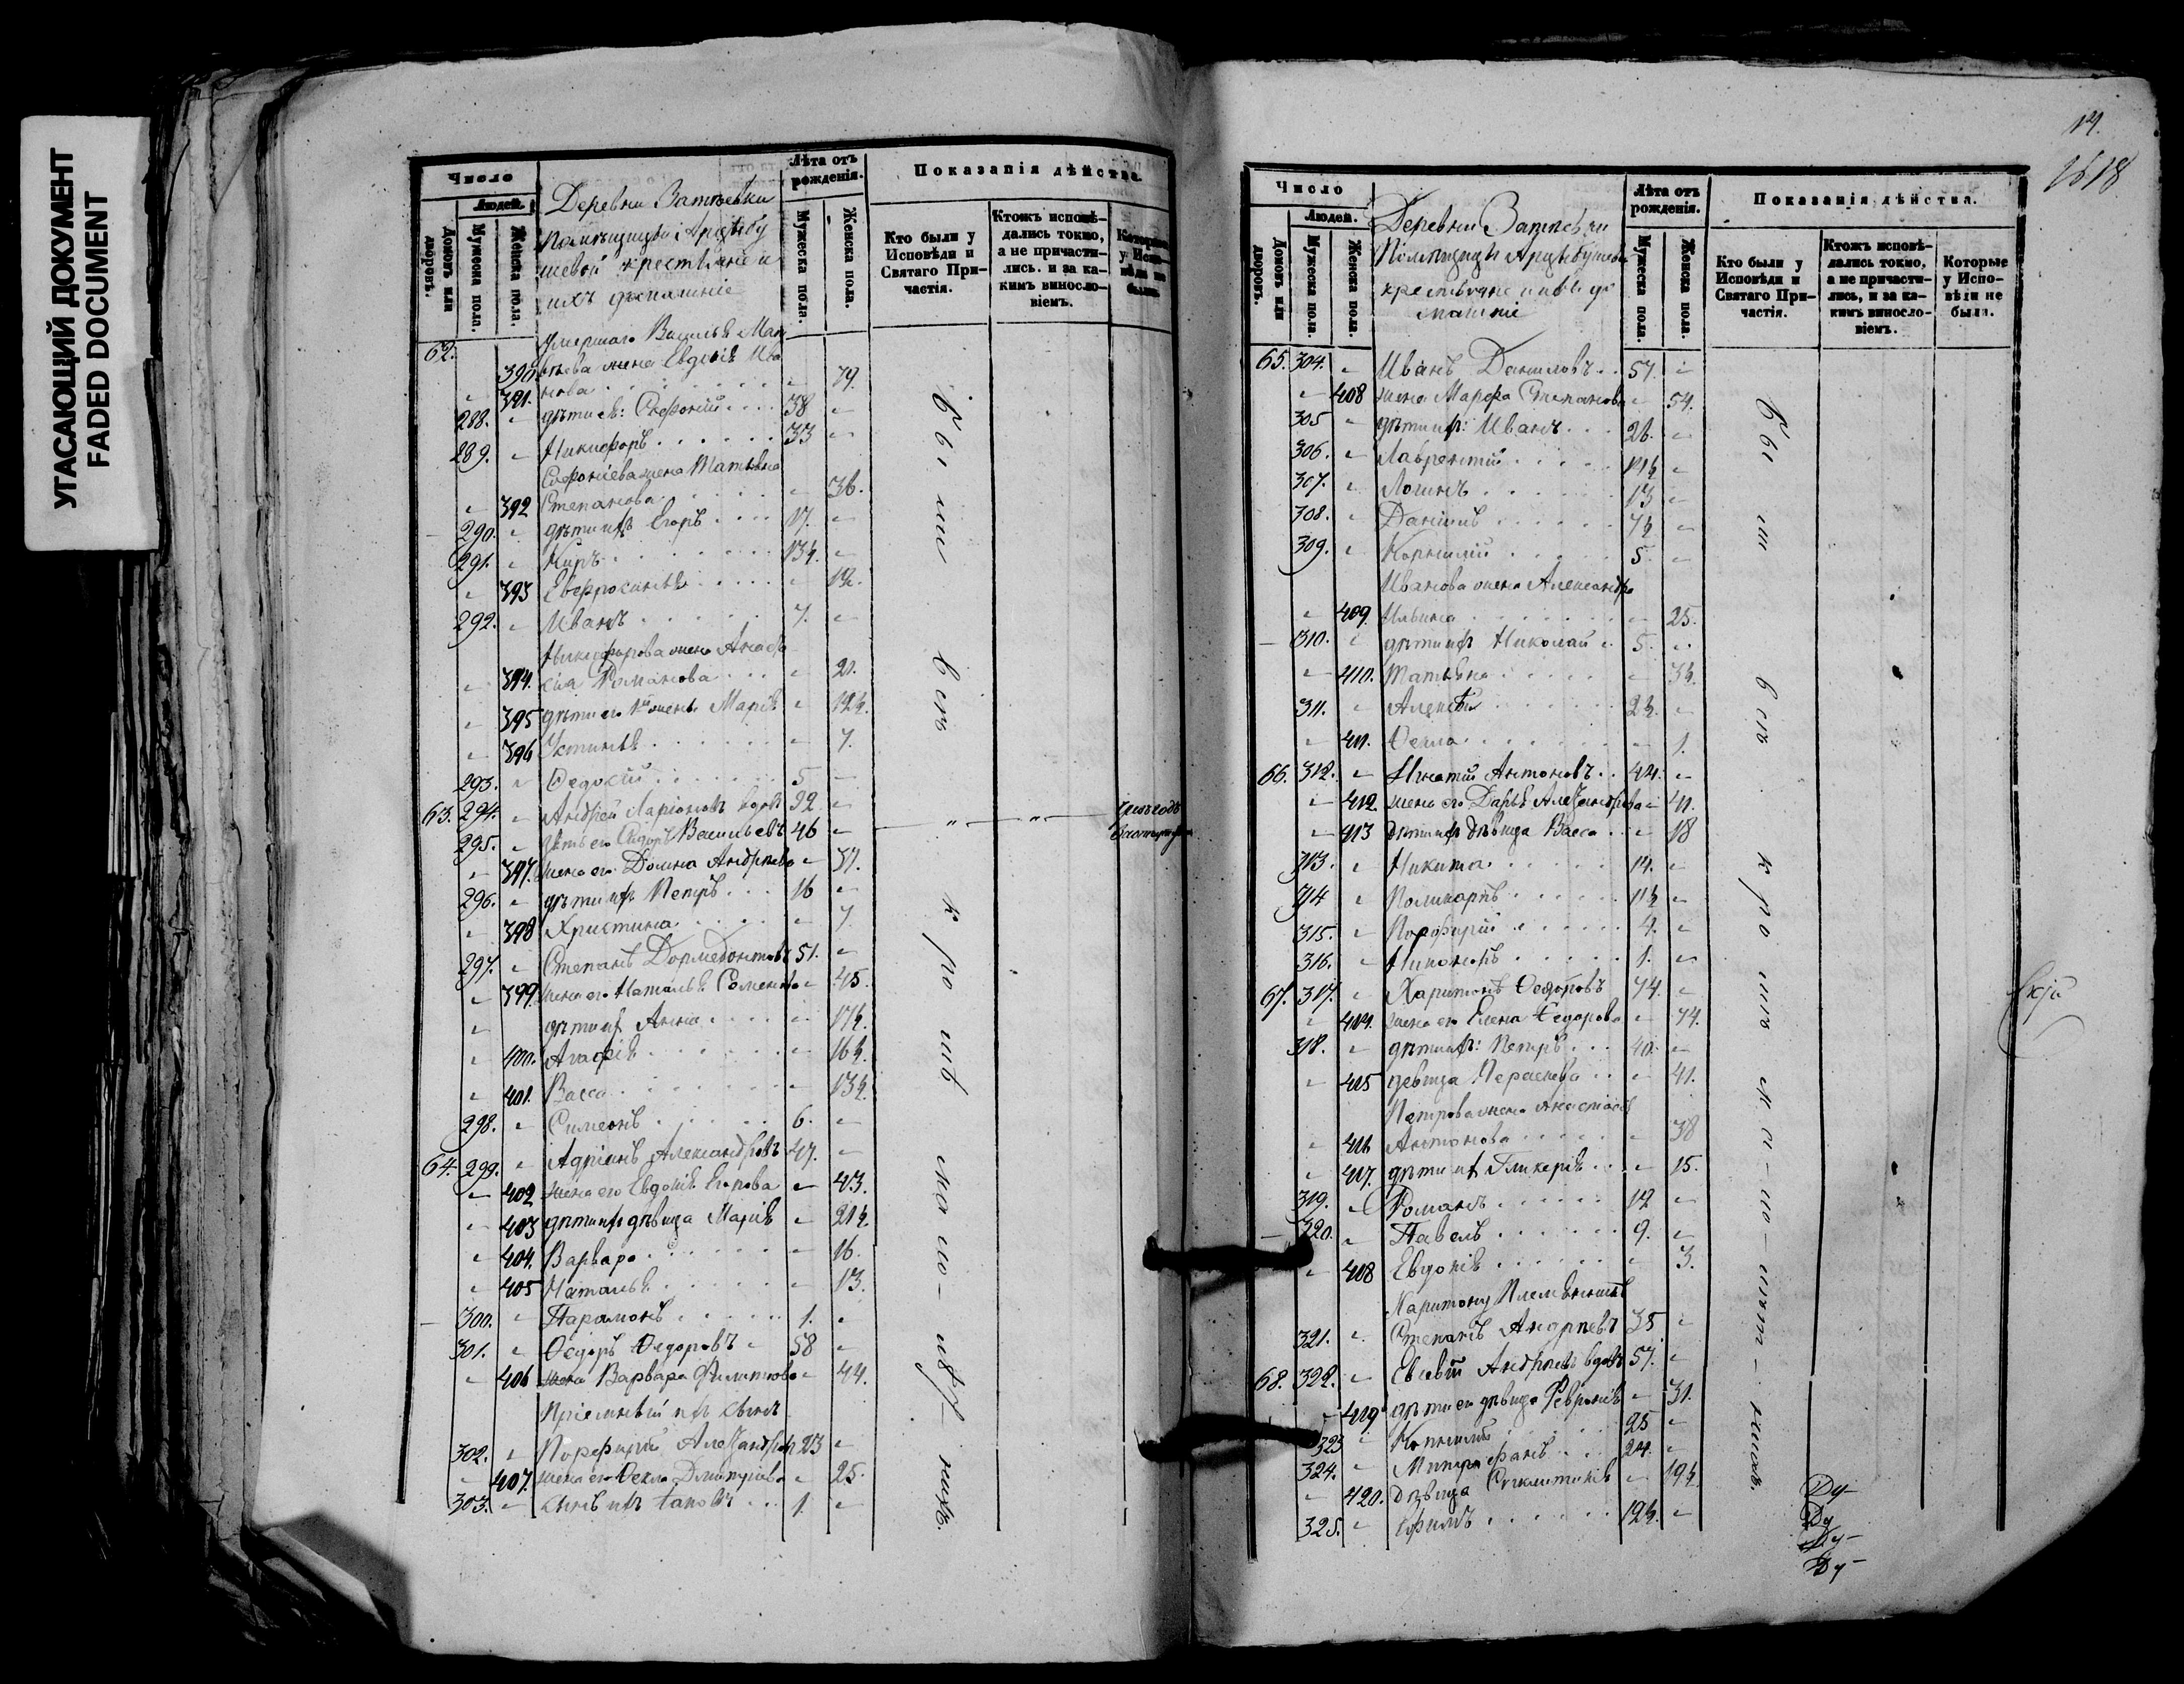 УГАСАЮЩИЙ ДОКУМЕНТ
FADED DOCUMENT
Число
Людей.
Домовъ или дворовъ.
Мужеска пола.
Женска пола.
Деревни Затѣевки
Помѣщицы Арцыбу
шевой крестьяне и
ихъ домашніе
Лѣта отъ рожденія.
Мужеска пола.
Женска пола.
Показанія дѣйства.
Кто были у Исповѣди и Святаго Причастія.
Ктожъ исповѣдались токмо, а не причастились. и за какимъ винословіемъ.
Которые у Исповѣди не были.
62. Умершаго Василья Мат
390. вѣева жена Евдокія Ива
391. нова 79.
288. дѣти ея: Софоній 38
289. Никифоръ 33
Софоніева жена Татьяна
392 Степанова 36.
290. дѣти ихъ Егоръ 17.
291. Киръ 13½
393 Евфросинья 12.
292. Иванъ 7.
Никифорова жена Анаста
394. сія Романова 21.
395 дѣти его 1й жены Марія 12½.
396 Устинья 7.
293. Федосій 5
63. 294. Андрей Ларіоновъ вдовъ 92
295. зять его Сидоръ Васильевъ 46
397. жена его Домна Андреева 37.
296. дѣти ихъ Петръ 16
398 Христина 7
297. Степанъ Дормедонтовъ 51.
399. жена его Наталья Семенова 45.
дѣти ихъ Анна 17½.
400. Агафія 16½.
401. Васса 13½.
298. Симеонъ 6.
64. 299. Адріанъ Александровъ 47.
402 жена его Евдокія Егорова 43.
403 дѣти ихъ дѣвица Марія 21½.
404. Варвара 16.
405 Наталья 13.
300. Парамонъ 1.
301. Федоръ Федоровъ 58
406 жена Варвара Филипова 44.
Пріемный ихъ сынъ
302. Порфирій Александровъ 23
407. жена его Фекла Дмитріева 25.
303. сынъ ихъ Яковъ 1.
Были всѣ кромѣ мало-лѣтнихъ.
14.
1618
Число
Людей.
Домовъ или дворовъ.
Мужеска пола.
Женска пола.
Деревни Затѣевки
Помѣщицы Арцыбушевой
крестьяне и ихъ до
машніе
Лѣта отъ рожденія.
Мужеска пола.
Женска пола.
Показанія дѣйства.
Кто были у Исповѣди и Святаго Причастія.
Ктожъ исповѣдались токмо, а не причастились, и за какимъ винословіемъ.
Которые у Исповѣди не были.
65. 304. Иванъ Даниловъ 57.
408 жена Марфа Степанова 54.
305 дѣти ихъ: Иванъ 26.
306. Лаврентій 14½
307. Логинъ 13
308. Даніилъ 7½
309. Корнилій 5.
Иванова жена Александра
409. Ильина 25.
310. дѣти ихъ Николай 5.
410. Татьяна 3½.
311. Алексѣй 2½.
411. Фекла 1.
66. 312. Игнатій Антоновъ 44.
412. жена его Дарья Александрова 41.
413 дѣти ихъ дѣвица Васса 18
313. Никита 14.
314 Поликарпъ 11½
315. Порфирій 4.
316. Никаноръ 1.
67. 317. Харитонъ Федоровъ 74.
414. жена его Елена Федорова 74.
318. дѣти ихъ: Петръ 40.
415 девица Параскева 41.
Петрова жена Анастасія
416 Антонова 38
417. дѣти ихъ Гликерія 15.
319. Романъ 12
320. Павелъ 9.
408 Евдокія 3.
Харитону Племянникъ
321. Степанъ Андреевъ 35
68. 322. Евсевій Андреевъ вдовъ 57.
419 дѣти его дѣвица Февронія 31.
323 25
324. Митрофанъ 24.
420. дѣвица Синклитикія 19½
325. Ефимъ 12½.
Были всѣ кромѣ мало-лѣтнихъ.